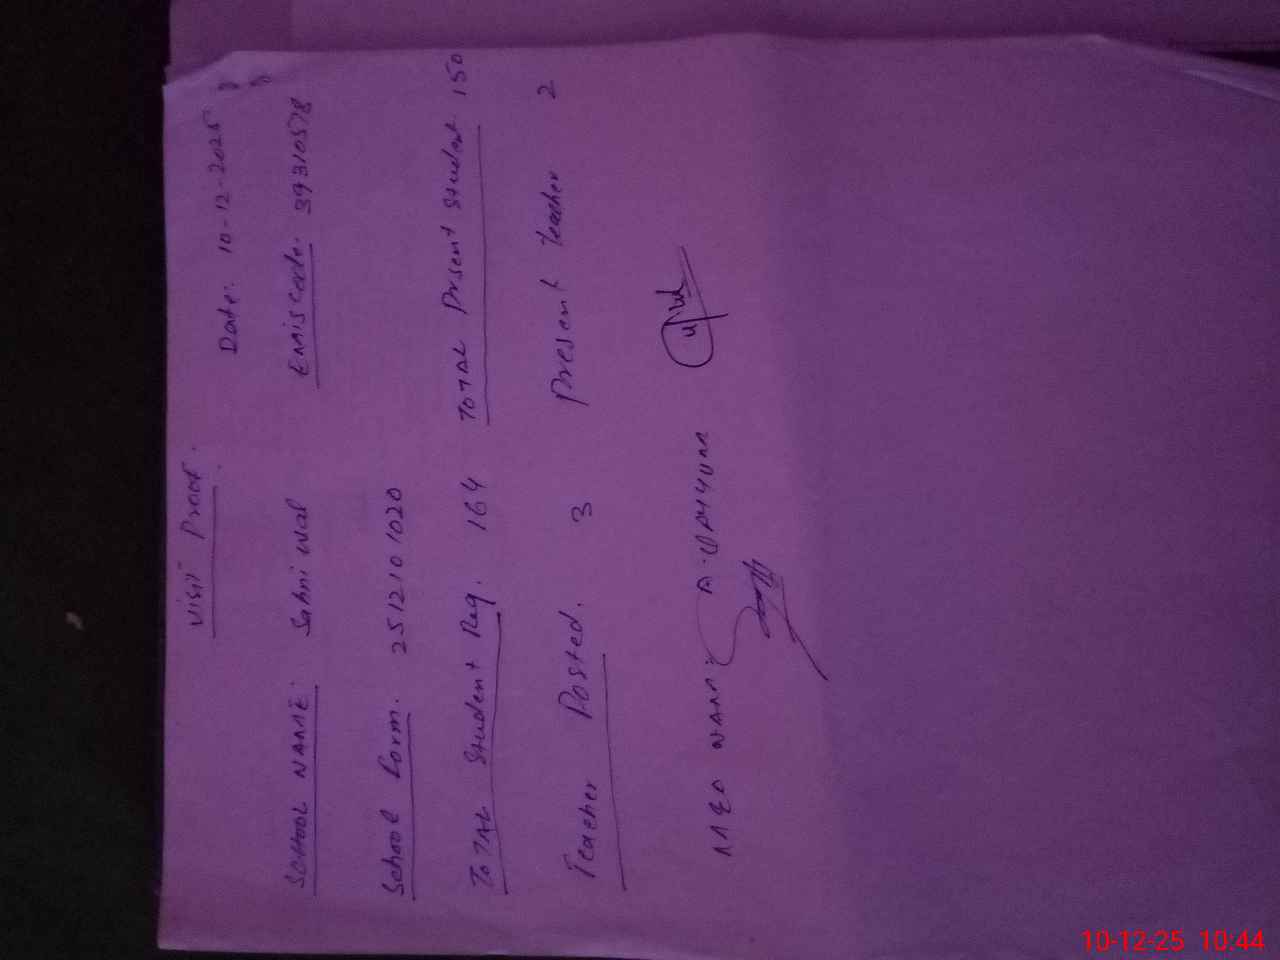 Visit Proof.
Date: 10-12-2025
SCHOOL NAME: Sahniwal Emiscode. 39310578
School Form. 251210 1020
TOTAL Student Reg. 164 TOTAL Prsent Student 150
Teacher Posted. 3 Present Teacher 2
M&O NAME: A.QAYYUM
10-12-25 10:44